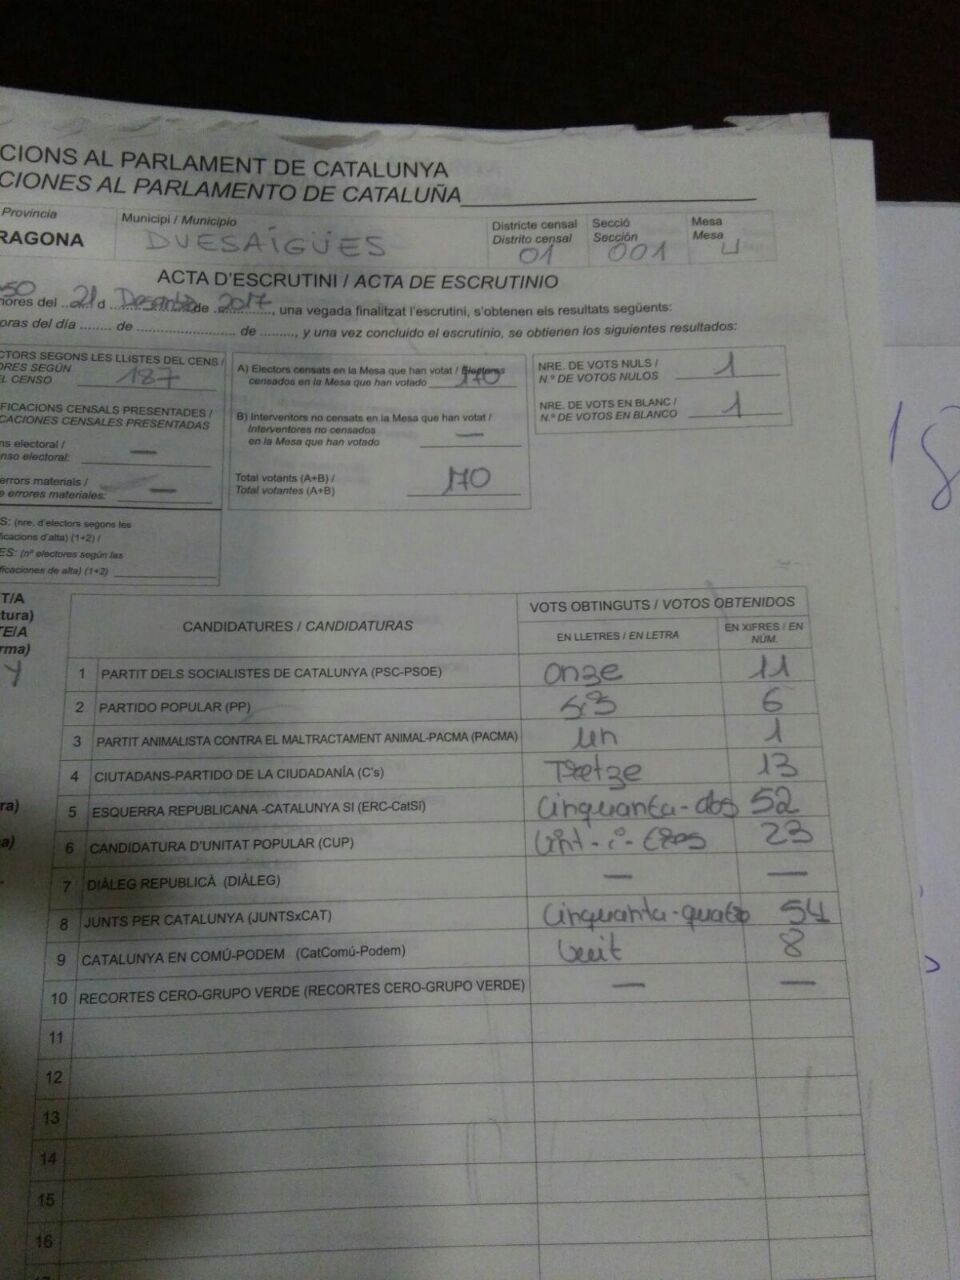 CIONS AL PARLAMENT DE CATALUNYA
CIONES AL PARLAMENTO DE CATALUÑA
Provincia
RAGONA
Municipi / Municipio
DUESAIGÜES
Districte censal
Distrito censal
01
Secció
Sección
001
Mesa
Mesa
U
ACTA D'ESCRUTINI / ACTA DE ESCRUTINIO
hores del 21 d Desembre de 2017, una vegada finalitzat l'escrutini, s'obtenen els resultats següents:
oras del día ........ de ........................ de ........., y una vez concluido el escrutinio, se obtienen los siguientes resultados:
CTORS SEGONS LES LLISTES DEL CENS /
ORES SEGÚN
EL CENSO 187
IFICACIONS CENSALS PRESENTADES /
CACIONES CENSALES PRESENTADAS
ns electoral /
nso electoral: —
errors materials /
e errores materiales: —
S: (nre. d'electors segons les
ficacions d'alta) (1+2) /
ES: (nº electores según las
ificaciones de alta) (1+2)
A) Electors censats en la Mesa que han votat / Electores
censados en la Mesa que han votado 170
B) Interventors no censats en la Mesa que han votat /
Interventores no censados
en la Mesa que han votado —
Total votants (A+B) /
Total votantes (A+B) 170
NRE. DE VOTS NULS /
N.º DE VOTOS NULOS 1
NRE. DE VOTS EN BLANC /
N.º DE VOTOS EN BLANCO 1
18
T/A
tura)
TE/A
rma)
CANDIDATURES / CANDIDATURAS
VOTS OBTINGUTS / VOTOS OBTENIDOS
EN LLETRES / EN LETRA
EN XIFRES / EN
NÚM.
1 PARTIT DELS SOCIALISTES DE CATALUNYA (PSC-PSOE) onze 11
2 PARTIDO POPULAR (PP) sis 6
3 PARTIT ANIMALISTA CONTRA EL MALTRACTAMENT ANIMAL-PACMA (PACMA) un 1
4 CIUTADANS-PARTIDO DE LA CIUDADANÍA (C's) Tretze 13
5 ESQUERRA REPUBLICANA -CATALUNYA SI (ERC-CatSI) Cinquanta-dos 52
6 CANDIDATURA D'UNITAT POPULAR (CUP) Vint-i-tres 23
7 DIÀLEG REPUBLICÀ (DIÀLEG) — —
8 JUNTS PER CATALUNYA (JUNTSxCAT) Cinquanta-quatre 54
9 CATALUNYA EN COMÚ-PODEM (CatComú-Podem) Vuit 8
10 RECORTES CERO-GRUPO VERDE (RECORTES CERO-GRUPO VERDE) — —
11
12
13
14
15
16